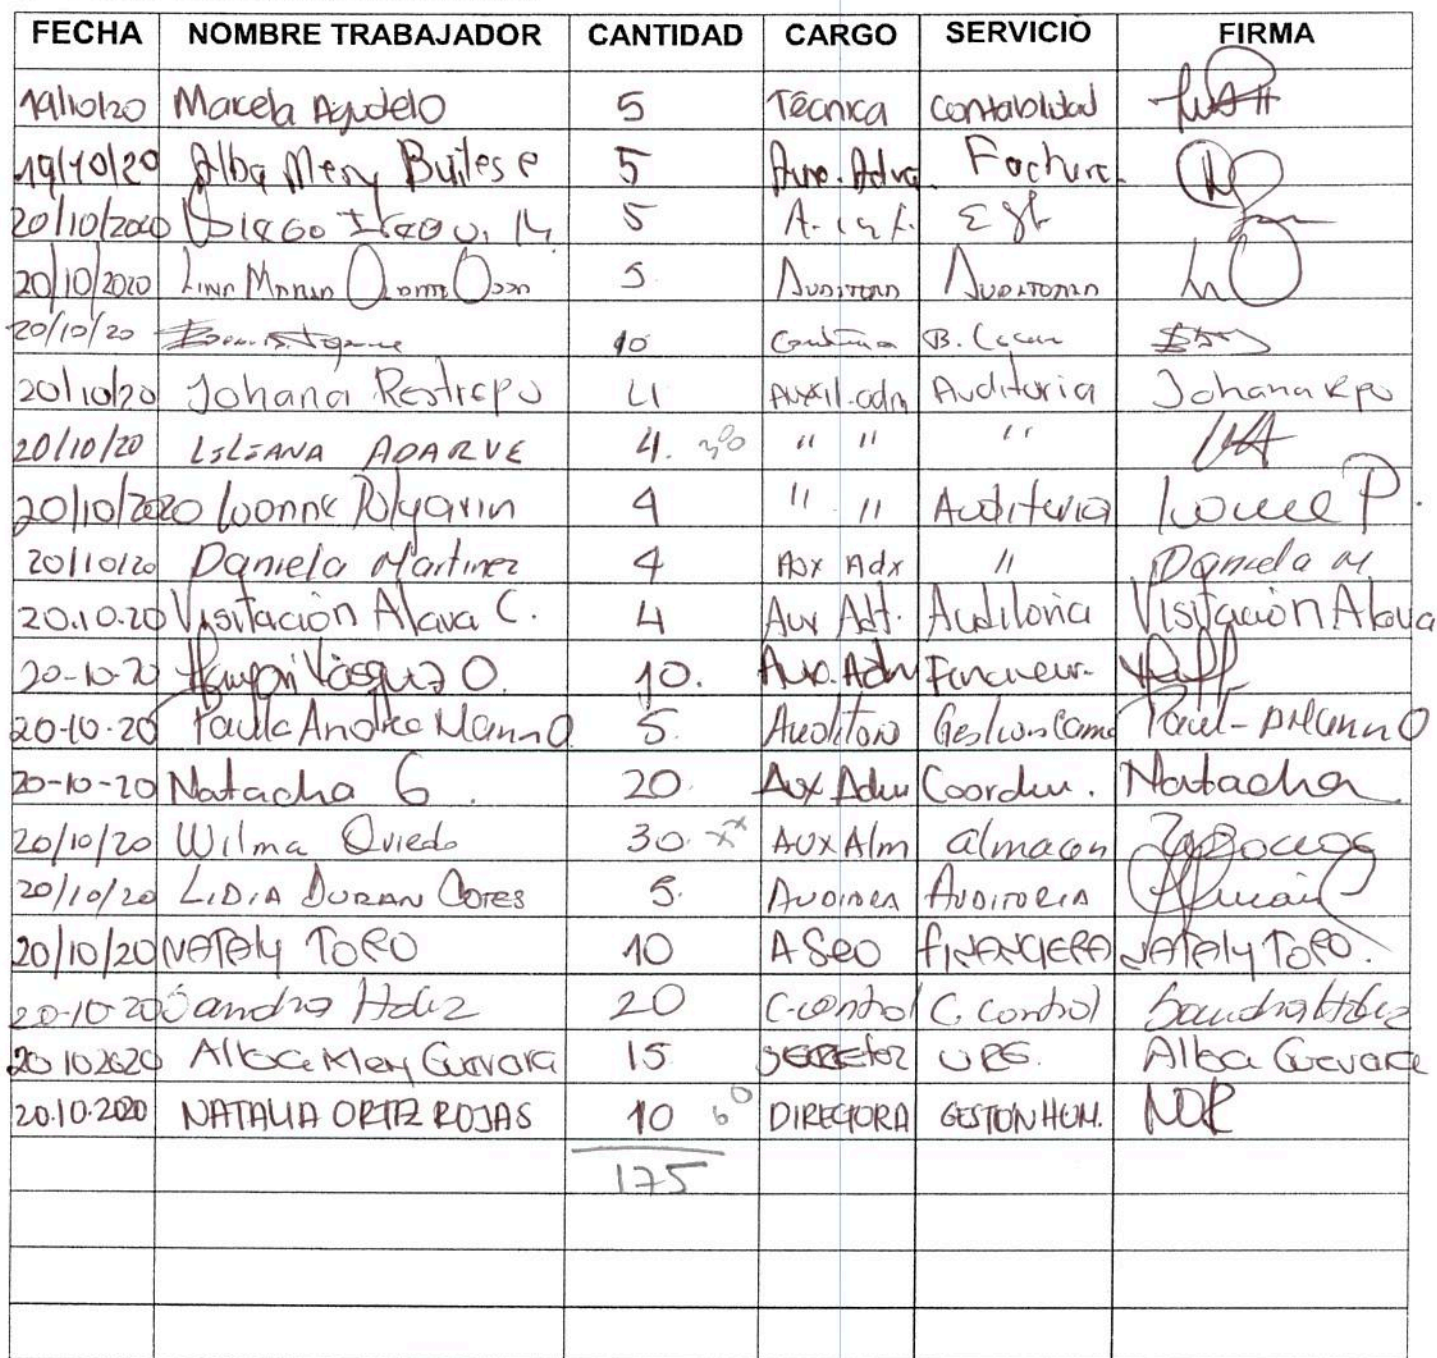 FECHA NOMBRE TRABAJADOR CANTIDAD CARGO SERVICIO FIRMA
19/10/20 Marcela Agudelo 5 Técnica Contabilidad
19/10/20 Alba Mery Builes 5 Aux. Adva. Factura
20/10/2020 5
20/10/2020 Lina Maria 5 Auditora Auditoria
20/10/20 10
20/10/20 Johana Restrepo 4 Auxil. adm Auditoria Johana Rpo
20/10/20 LILIANA ADARVE 4. " " " LA
20/10/2020 Ivonne Polgarin 4 " " Auditoria Ivonne P.
20/10/20 Daniela Martinez 4 Aux Adx " Daniela M
20.10.20 Visitación Alava C. 4 Aux Adt. Auditoria Visitación Alava
20-10-20 Vásquez O. 10. Aux. Adm
20-10-20 Paula Andrea Marin O 5. Auditora
20-10-20 Natacha G. 20. Aux Adm Coordin. Natacha
20/10/20 Wilma Oviedo 30. AUX Alm almacen
20/10/20 LIDIA DURAN CORTES 5. AUDITORA AUDITORIA
20/10/20 NATALY TORO 10 ASeo FINANCIERA NATALY TORO.
20-10-20 Sandra Hdez 20 C.control C. Control Sandra Hdez
20 10 2020 Alba Mery Guevara 15 Alba Guevara
20.10.2020 NATALIA ORTIZ ROJAS 10 DIRECTORA GESTION HUM. NOR
175